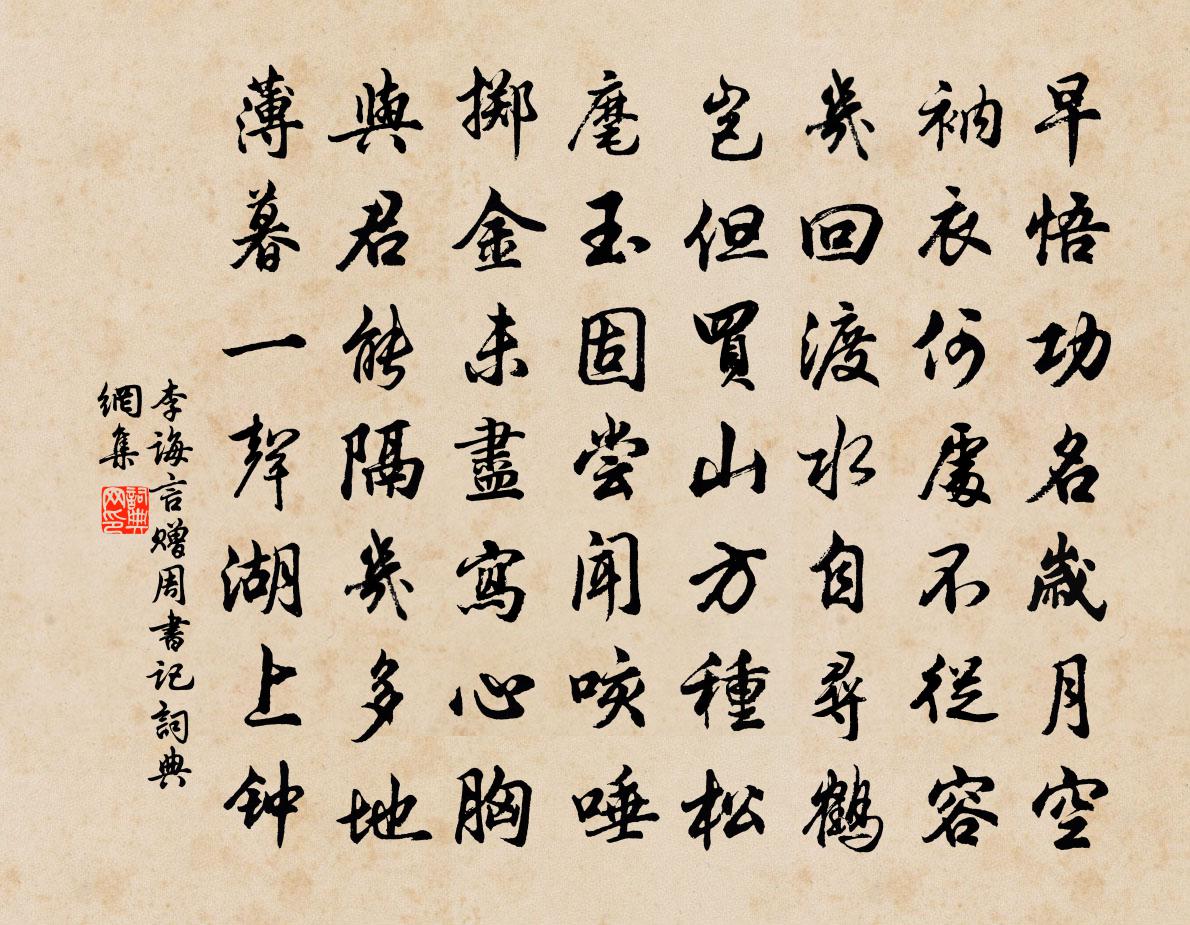 早悟功名歲月空
衲衣何處不從容
幾回渡水自尋鶴
豈但買山方種松
麾玉固嘗聞咳唾
擲金未盡寫心胸
與君能隔幾多地
薄暮一聲湖上钟
李誨言赠周書记詞典
網集
詞典
网印